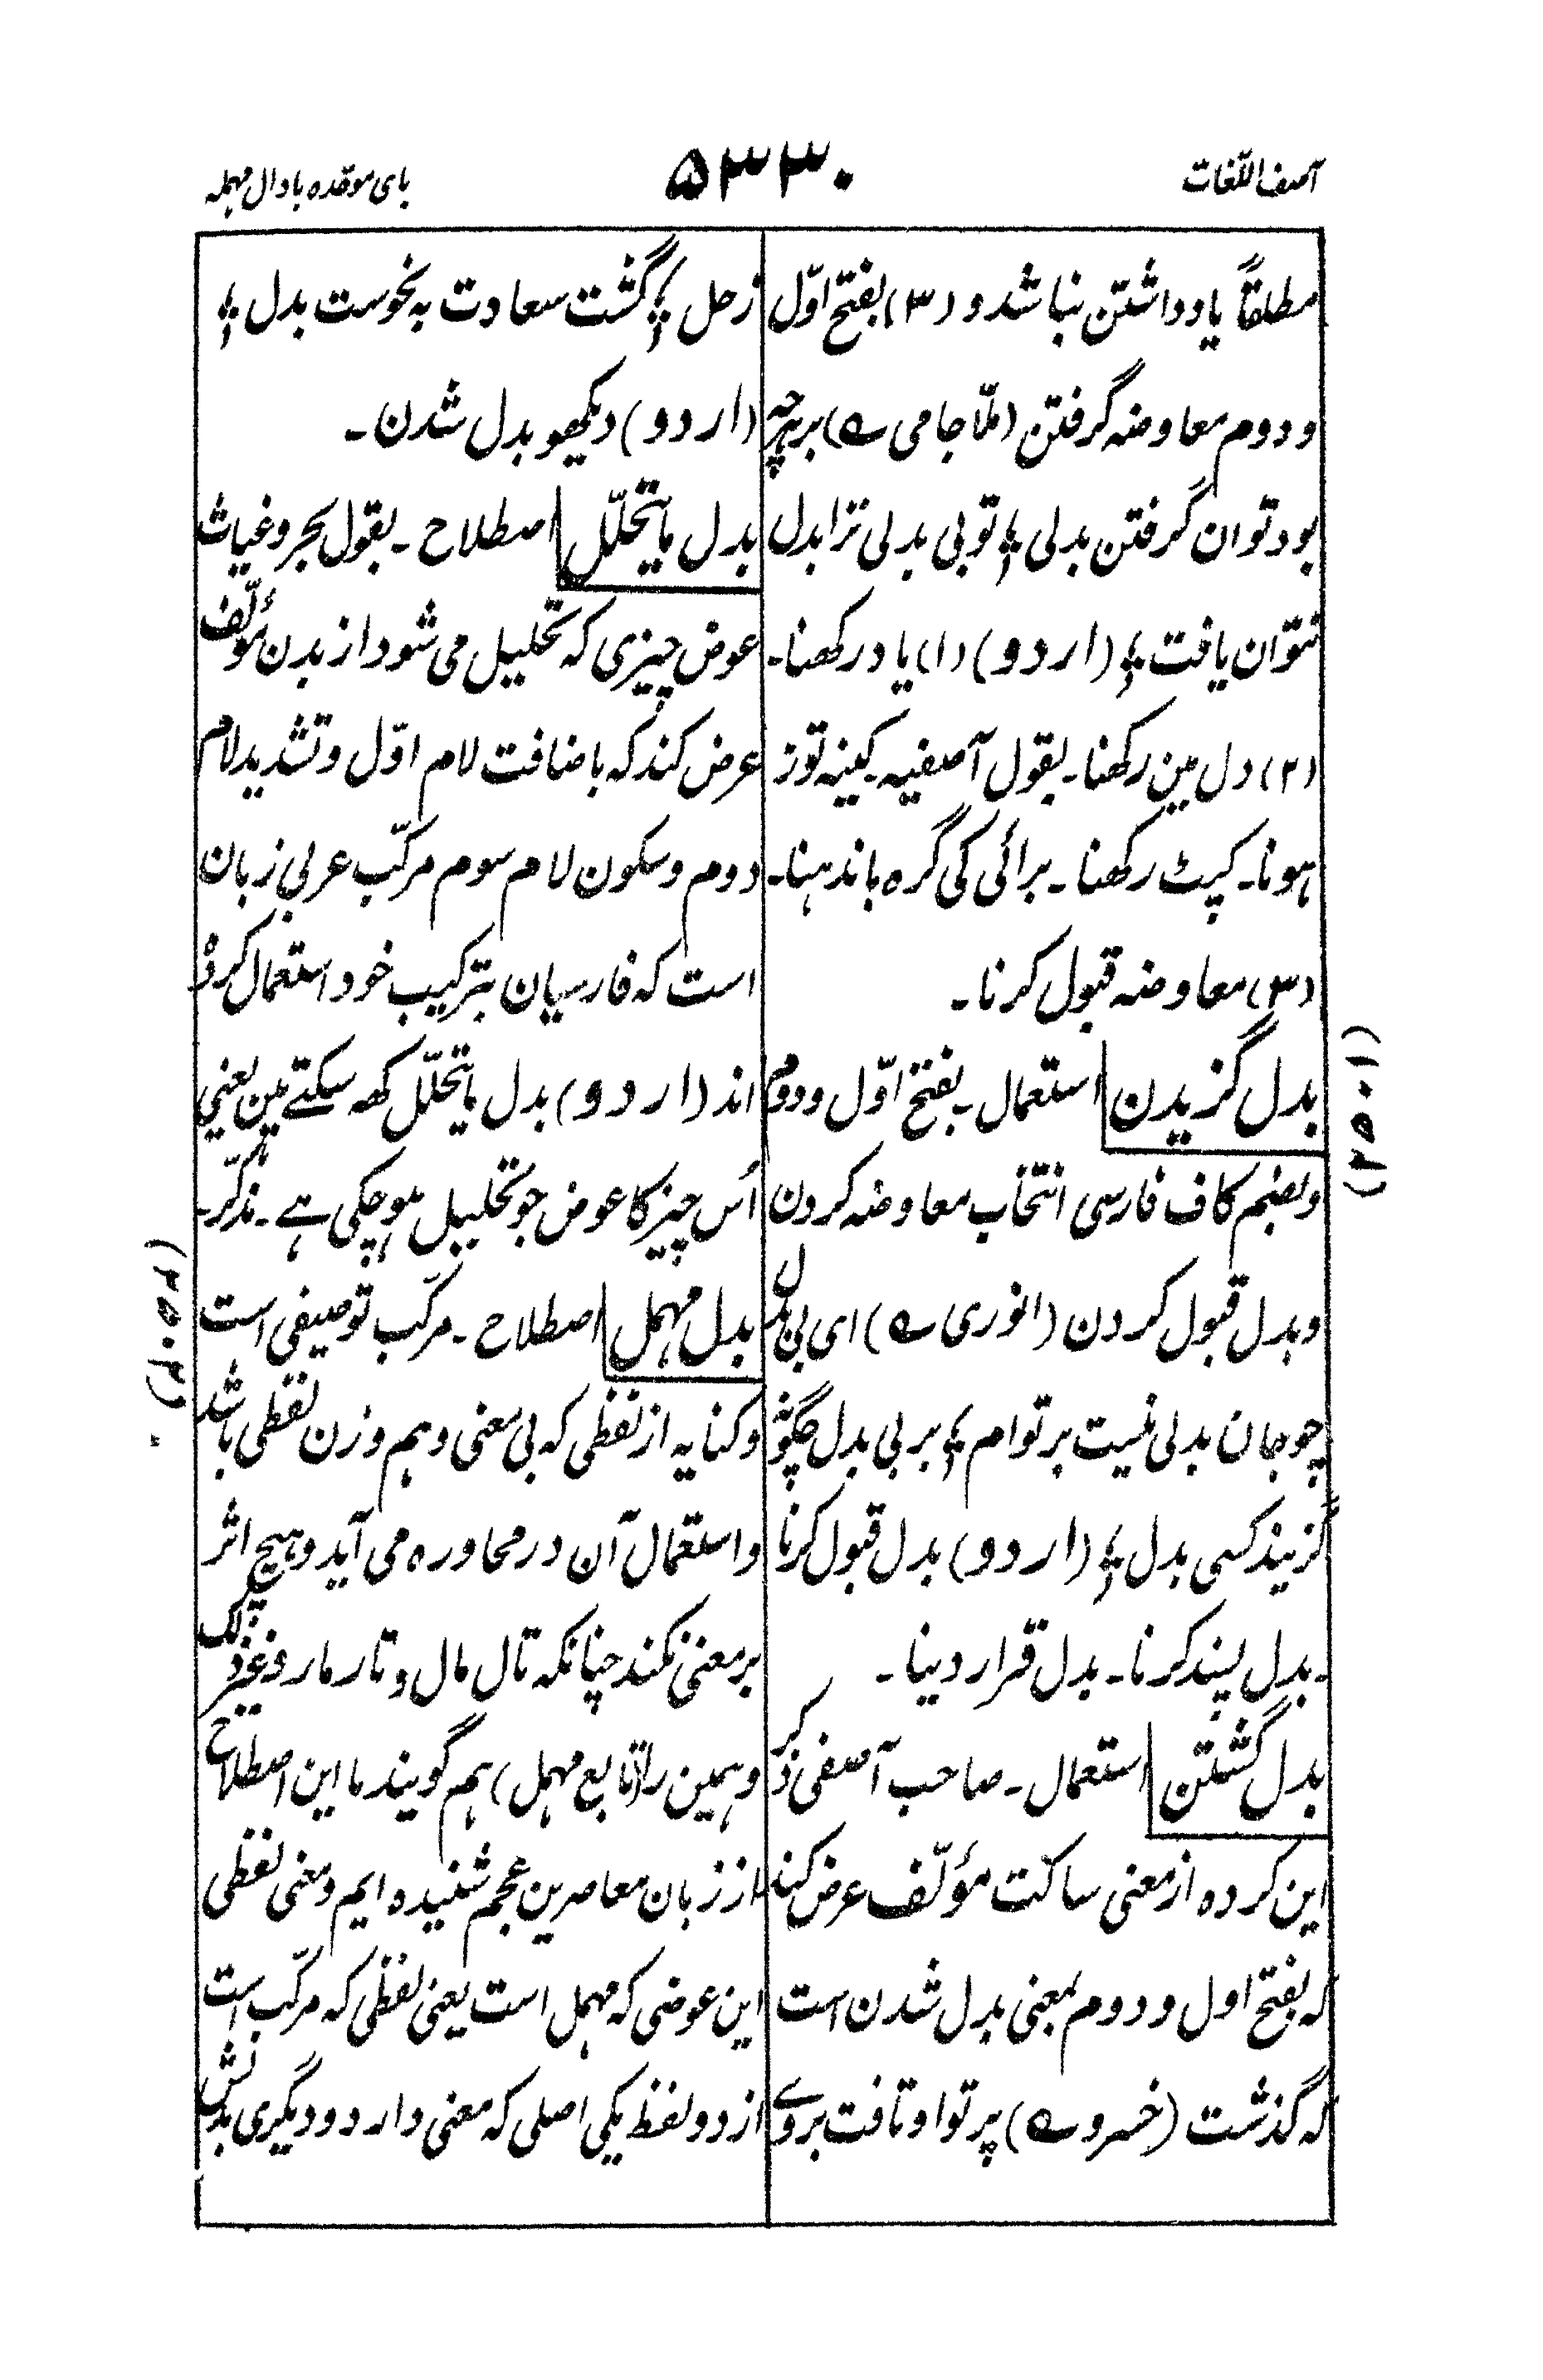 آصف اللّغات
۵۳۳۰
بای موحّده با دال مهمله
مطلقاً یاد داشتن نباشد و (۳) بفتح اوّل
و دوم معاوضه گرفتن (ملّا جامی ے) بر هر چه
بود توان گرفتن بدلی ؛ تو بی بدلی ترا بدل
نتوان یافت ؛ (اردو) (۱) یاد رکھنا۔
(۲) دل مین رکھنا۔ بقول آصفیہ۔ کینہ توز
ہونا۔ کپٹ رکھنا۔ برائی کی گرہ باندہنا۔
(۳) معاوضہ قبول کرنا۔
بدل گزیدن | استعمال۔ بفتح اوّل و دوم
و بضم کاف فارسی انتخاب معاوضه کردن
و بدل قبول کردن (انوری ے) ای بی بدل
چو جان بدلی نیست بر توام ؛ بر بی بدل چگونه
گزیند کسی بدل ؛ (اردو) بدل قبول کرنا
۔ بدل پسند کرنا۔ بدل قرار دینا۔
بدل گشتن | استعمال۔ صاحب آصفی ذکر
این کرده از معنی ساکت مؤلّف عرض کند
که بفتح اول و دوم بمعنی بدل شدن است
که گذشت (خسرو ے) پرتو او تافت بروے
(۲۵۰۱)
زحل ؛ گشت سعادت به نحوست بدل ؛
(اردو) دیکھو بدل شدن۔
بدل ما یتحلّل | اصطلاح۔ بقول بحر و غیاث
عوض چیزی که تحلیل می شود از بدن مؤلّف
عرض کند که باضافت لام اوّل و تشدید لام
دوم و سکون لام سوم مرکّب عربی زبان
است که فارسیان بترکیب خود استعمال کرده
اند (اردو) بدل ما یتحلّل کھہ سکتے ہین یعنی
اُس چیز کا عوض جو تحلیل ہو چکی ہے۔ مذکّر۔
بدل مهمل | اصطلاح۔ مرکّب توصیفی است
و کنایه از لفظی که بی معنی و هم وزن لفظی باشد
و استعمال آن در محاوره می آید و هیچ اثر
بر معنی نکند چنانکه تال مال و تار مار و غیر ذلک
و همین را (تابع مهمل) هم گویند ما این اصطلاح
از زبان معاصرین عجم شنیده ایم و معنی لفظی
این عوضی که مهمل است یعنی لفظی که مرکّب است
از دو لفظ یکی اصلی که معنی دارد و دیگری بدلش
(۲۵۰۲)